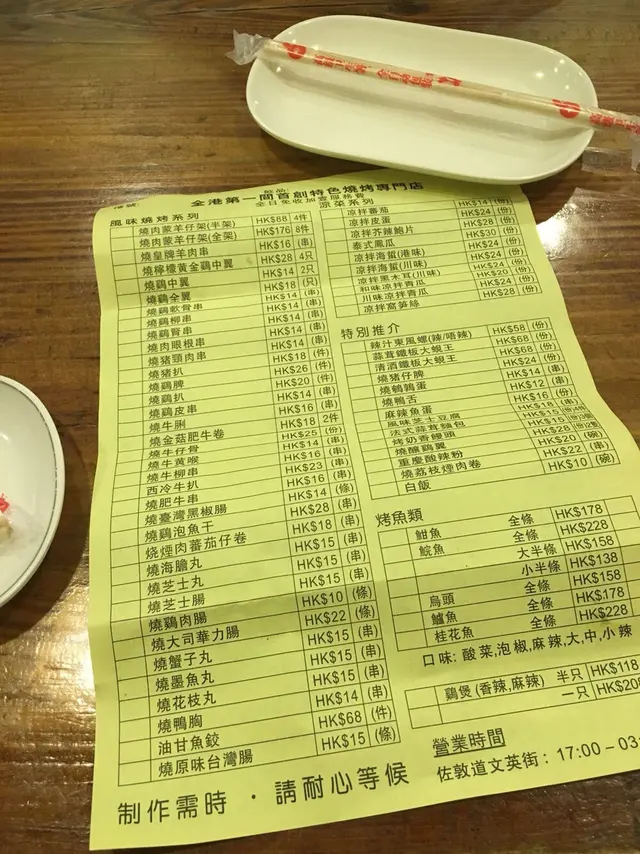 全港第一間首創特色燒烤專門店
全日免收加壹服務費
風味燒烤系列
燒肉蒙羊仔架(半架) HK$88 4件
燒肉蒙羊仔架(全架) HK$176 8件
燒皇牌羊肉串 HK$16 (串)
燒檸檬黃金鷄中翼 HK$28 4只
燒鷄中翼 HK$14 2只
燒鷄全翼 HK$18 (只)
燒鷄軟骨串 HK$14 (串)
燒鷄柳串 HK$14 (串)
燒鷄腎串 HK$14 (串)
燒肉眼根串 HK$14 (串)
燒豬頸肉串 HK$14 (串)
燒豬扒 HK$18 (件)
燒鷄脾 HK$26 (件)
燒鷄扒 HK$20 (件)
燒鷄皮串 HK$14 (串)
燒牛脷 HK$16 (串)
燒金菇肥牛卷 HK$18 2件
燒牛仔骨 HK$25 (份)
燒牛黃喉 HK$14 (串)
燒牛柳串 HK$16 (串)
西冷牛扒 HK$23 (串)
燒肥牛串 HK$16 (串)
燒臺灣黑椒腸 HK$14 (條)
燒鷄泡魚干 HK$28 (串)
烧煙肉蕃茄仔卷 HK$18 (串)
燒海膽丸 HK$15 (串)
燒芝士丸 HK$15 (串)
燒芝士腸 HK$15 (串)
燒鷄肉腸 HK$10 (條)
燒大司華力腸 HK$22 (條)
燒蟹子丸 HK$15 (串)
燒墨魚丸 HK$15 (串)
燒花枝丸 HK$15 (串)
燒鴨胸 HK$14 (串)
油甘魚鉸 HK$68 (件)
燒原味台灣腸 HK$15 (條)
凉菜系列
凉拌蕃茄 HK$14 (份)
凉拌皮蛋 HK$24 (份)
凉拌芥辣鮑片 HK$28 (份)
泰式鳳瓜 HK$30 (份)
凉拌海蜇(港味) HK$24 (份)
凉拌海蜇(川味) HK$28 (份)
凉拌黑木耳(川味) HK$24 (份)
和味凉拌青瓜 HK$20 (份)
川味凉拌青瓜 HK$24 (份)
凉拌窩笋絲 HK$28 (份)
特別推介
辣汁東風螺(辣/唔辣) HK$58 (份)
蒜茸鐵板大蜆王 HK$68 (份)
清酒鐵板大蜆王 HK$68 (份)
燒豬仔腳 HK$24 (份)
燒鵪鶉蛋 HK$14 (串)
燒鴨舌 HK$12 (串)
麻辣魚蛋 HK$16 (份)
風味芝士豆腐 HK$18
法式蒜茸麵包 HK$15
烤奶香饅頭 HK$15
燒釀鷄翼 HK$28
重慶酸辣粉 HK$20 (碗)
燒荔枝煙肉卷 HK$22 (串)
白飯 HK$10 (碗)
烤魚類
鮒魚 全條 HK$178
鯇魚 全條 HK$228
大半條 HK$158
小半條 HK$138
烏頭 全條 HK$158
鱸魚 全條 HK$178
桂花魚 全條 HK$228
口味: 酸菜,泡椒,麻辣,大,中,小辣
鷄煲(香辣,麻辣) 半只 HK$118
一只 HK$208
營業時間
佐敦道文英街: 17:00－03:
制作需時 · 請耐心等候